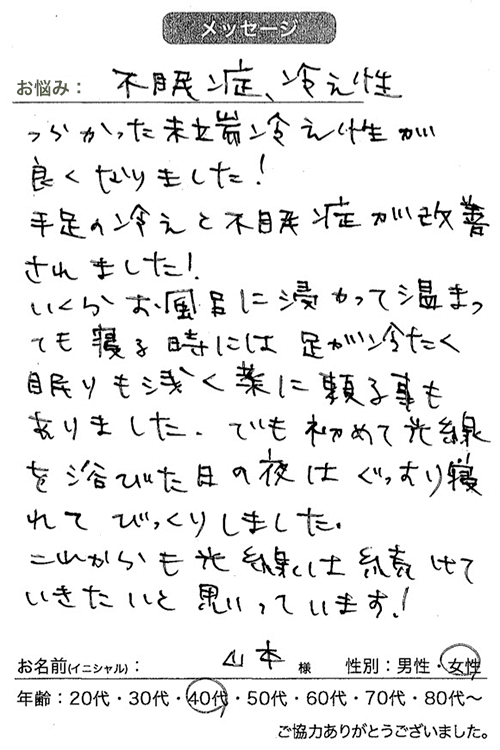 メッセージ
お悩み： 不眠症、冷え性
つらかった末端冷え性が
良くなりました!
手足の冷えと不眠症が改善
されました!
いくらお風呂に浸かって温まっ
ても寝る時には足が冷たく
眠りも浅く薬に頼る事も
ありました。でも初めて光線
を浴びた日の夜はぐっすり寝
れてびっくりしました。
これからも光線は続けて
いきたいと思っています!
お名前(イニシャル)： 山本 様 性別：男性・女性
年齢：20代・30代・40代・50代・60代・70代・80代～
ご協力ありがとうございました。